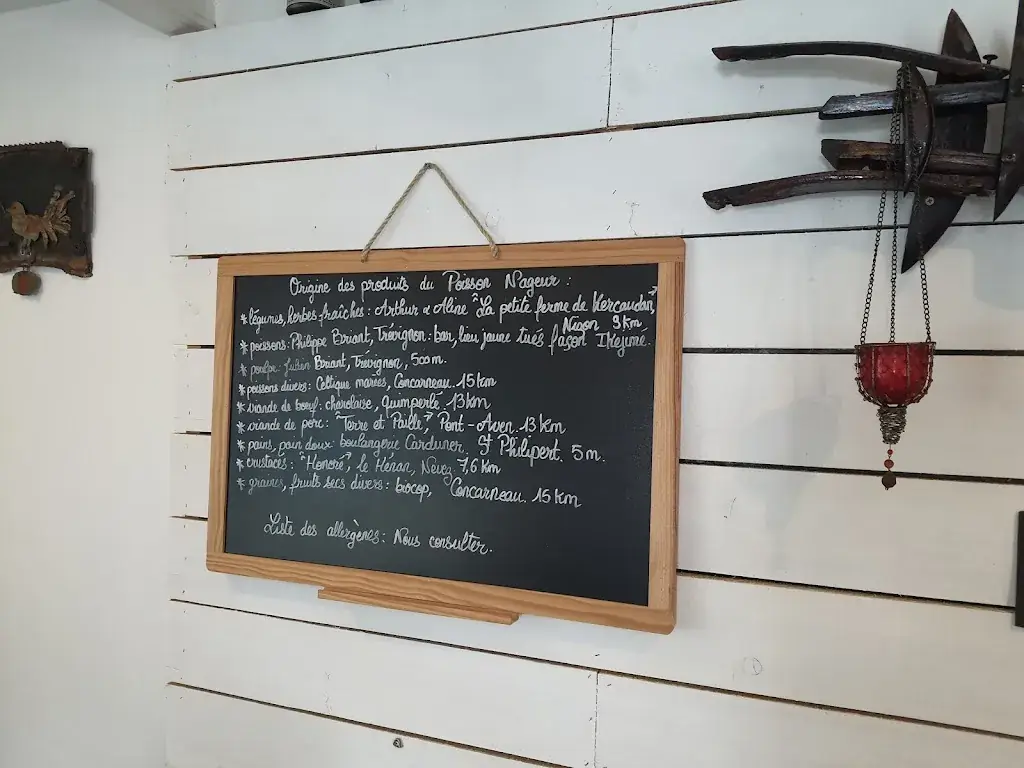 Origine des produits du Poisson Nageur :
* légumes, herbes fraîches : Arthur & Aline "La petite ferme de Kercaudan",
Nizon 9 km
* poissons : Philippe Briant, Trévignon : bar, lieu jaune tués façon Ikejime.
* poulpe : Julien Briant, Trévignon, 500 m.
* poissons divers : Celtique marées, Concarneau. 15 km
* viande de bœuf : charolaise, Quimperlé. 13 km
* viande de porc : "Terre et Paille", Pont-Aven. 13 km
* pains, pain doux : boulangerie Carduner, St Philipert. 5 m.
* crustacés : "Honoré", le Hénan, Névez 7,6 km
* graines, fruits secs divers : biocop, Concarneau. 15 km
Liste des allergènes : Nous consulter.